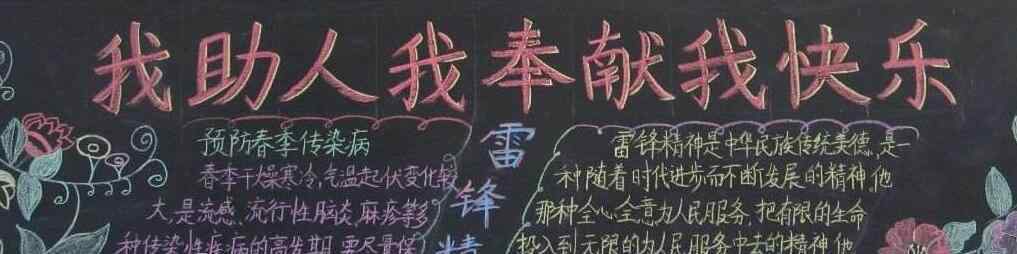 我助人我奉献我快乐
预防春季传染病
春季干燥寒冷,气温起伏变化较
大,是流感、流行性脑炎、麻疹等多
种传染性疾病的高发期,要尽量保
雷锋精
雷锋精神是中华民族传统美德,是一
种随着时代进步而不断发展的精神,他
那种全心全意为人民服务,把有限的生命
投入到无限的为人民服务中去的精神,他